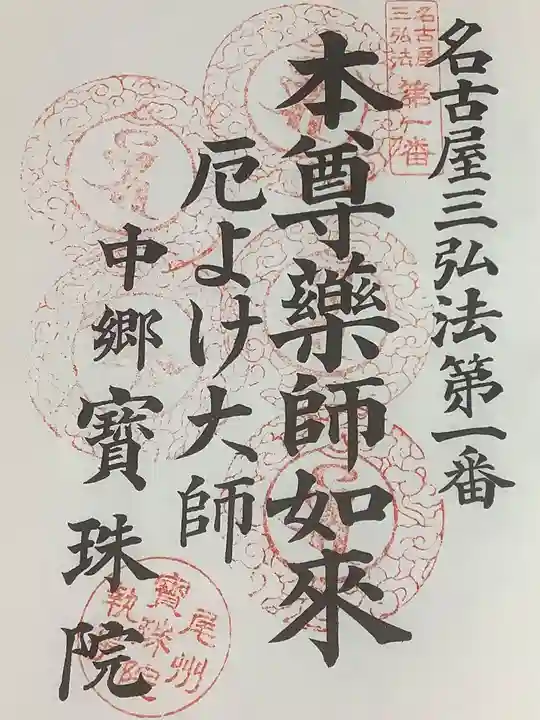 名古屋三弘法第一番
名古屋
三弘法
第一番
本尊藥師如來
厄よけ大師
中郷寳珠院
尾州
寳珠院